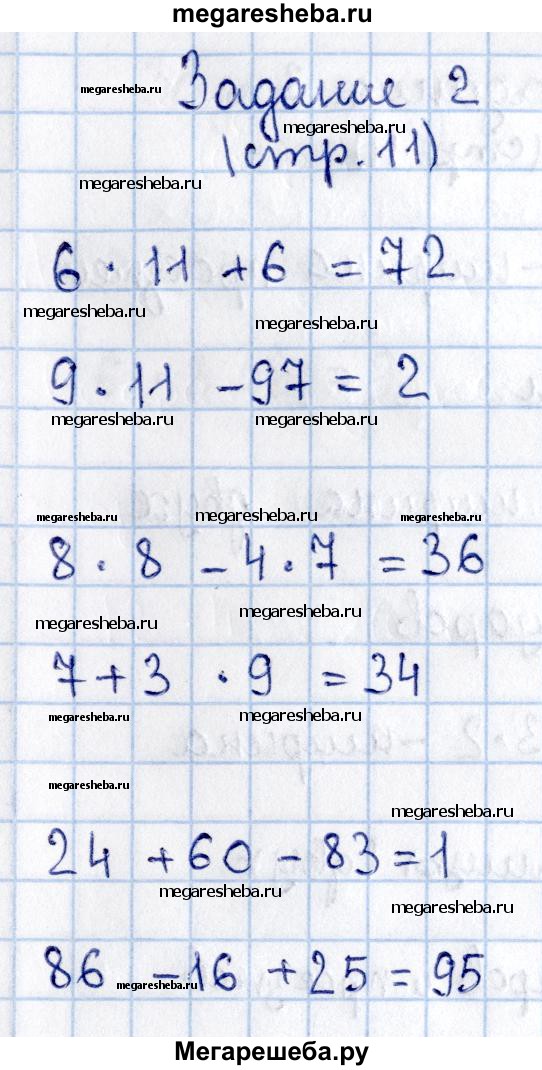 megaresheba.ru
megaresheba.ru Задание 2
megaresheba.ru
(стр. 11)
megaresheba.ru
6 · 11 + 6 = 72
megaresheba.ru
megaresheba.ru
9 · 11 - 97 = 2
megaresheba.ru megaresheba.ru
megaresheba.ru megaresheba.ru megaresheba.ru
8 · 8 - 4 · 7 = 36
megaresheba.ru
megaresheba.ru
7 + 3 · 9 = 34
megaresheba.ru megaresheba.ru
megaresheba.ru
megaresheba.ru
24 + 60 - 83 = 1
megaresheba.ru
megaresheba.ru
86 - 16 + 25 = 95
megaresheba.ru
Мегарешеба.ру